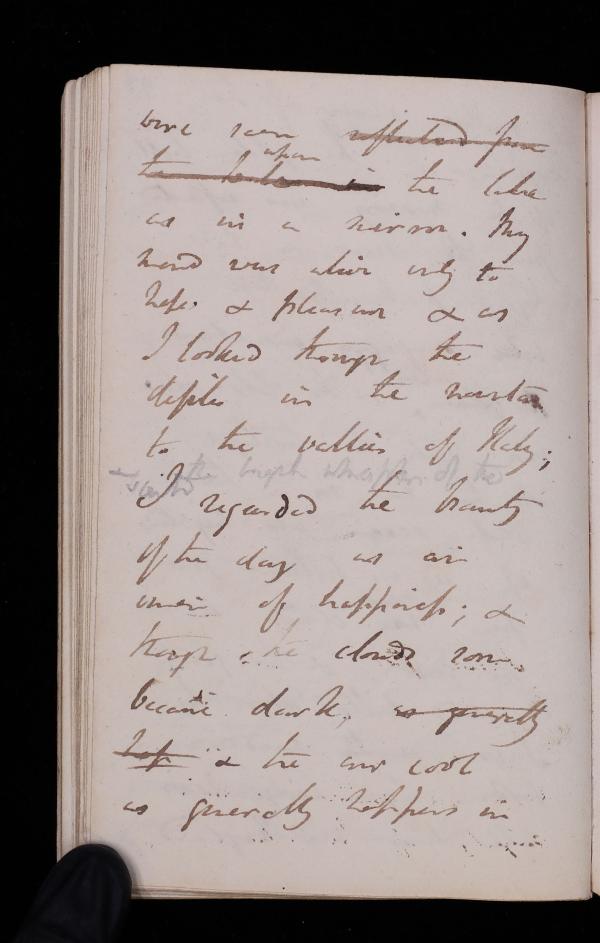 were seen reflected from
upon
the in the lake
as in a mirror. My
mind was alive only to
hope & pleasure & as
I looked through the
defiles in the
to the vallies of Italy;
the bright of the
I regarded the beauty
of the day as an
omen of happiness; &
though the clouds soon
became dark, as generally
hap & the air cool
as generally happens in